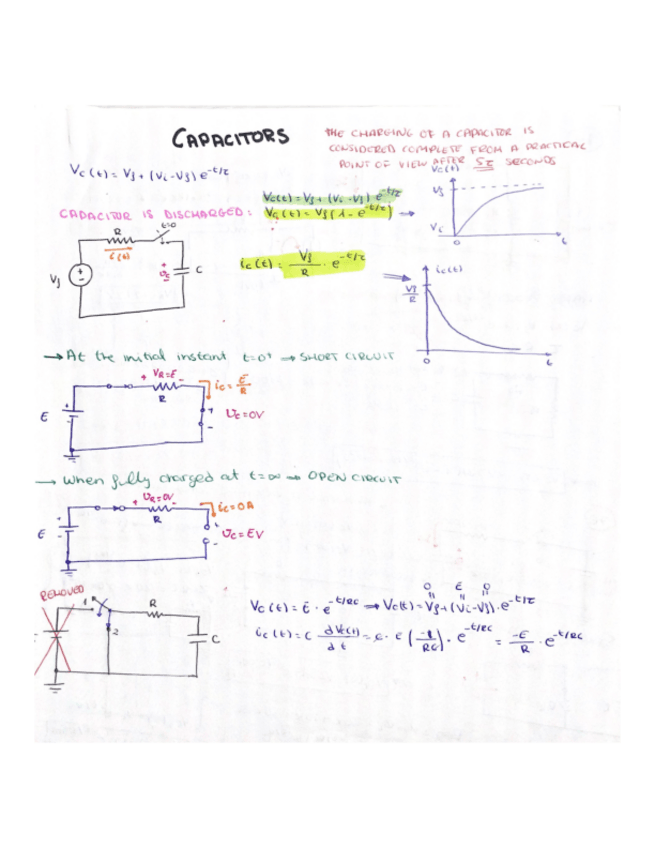 CAPACITORS
THE CHARGING OF A CAPACITOR IS
CONSIDERED COMPLETE FROM A PRACTICAL
POINT OF VIEW AFTER 5τ SECONDS
Vc(t) = Vf + (Vi - Vf) e^-t/τ
Vc(t) = Vf + (Vi - Vf) e^-t/τ
CAPACITOR IS DISCHARGED: Vc(t) = Vf (1 - e^-t/τ) ⇒
Vc(t)
Vf
Vi
0
t
R
t=0
i(t)
Vf
+
-
+
Vc
-
C
ic(t) = Vf/R · e^-t/τ ⇒
ic(t)
Vf/R
0
t
→ At the initial instant t=0⁺ ⇒ SHORT CIRCUIT
+ VR=E -
R
ic = E/R
E
+
-
+
-
Uc=0V
→ When fully charged at t=∞ ⇒ OPEN CIRCUIT
+ UR=0V -
R
ic=0A
E
+
-
+
-
Uc=EV
REMOVED
1
2
R
C
0 E 0
Vc(t) = E · e^-t/RC ⇒ Vc(t) = Vf + (Vi - Vf) · e^-t/τ
ic(t) = C dVc(t)/dt = C · E (-1/RC) · e^-t/RC = -E/R · e^-t/RC